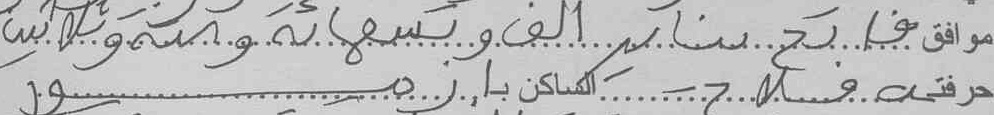 موافق فاتح يناير ألف وتسعمائة وستة وثلاثين
حرفته فلاح الساكن بازمور